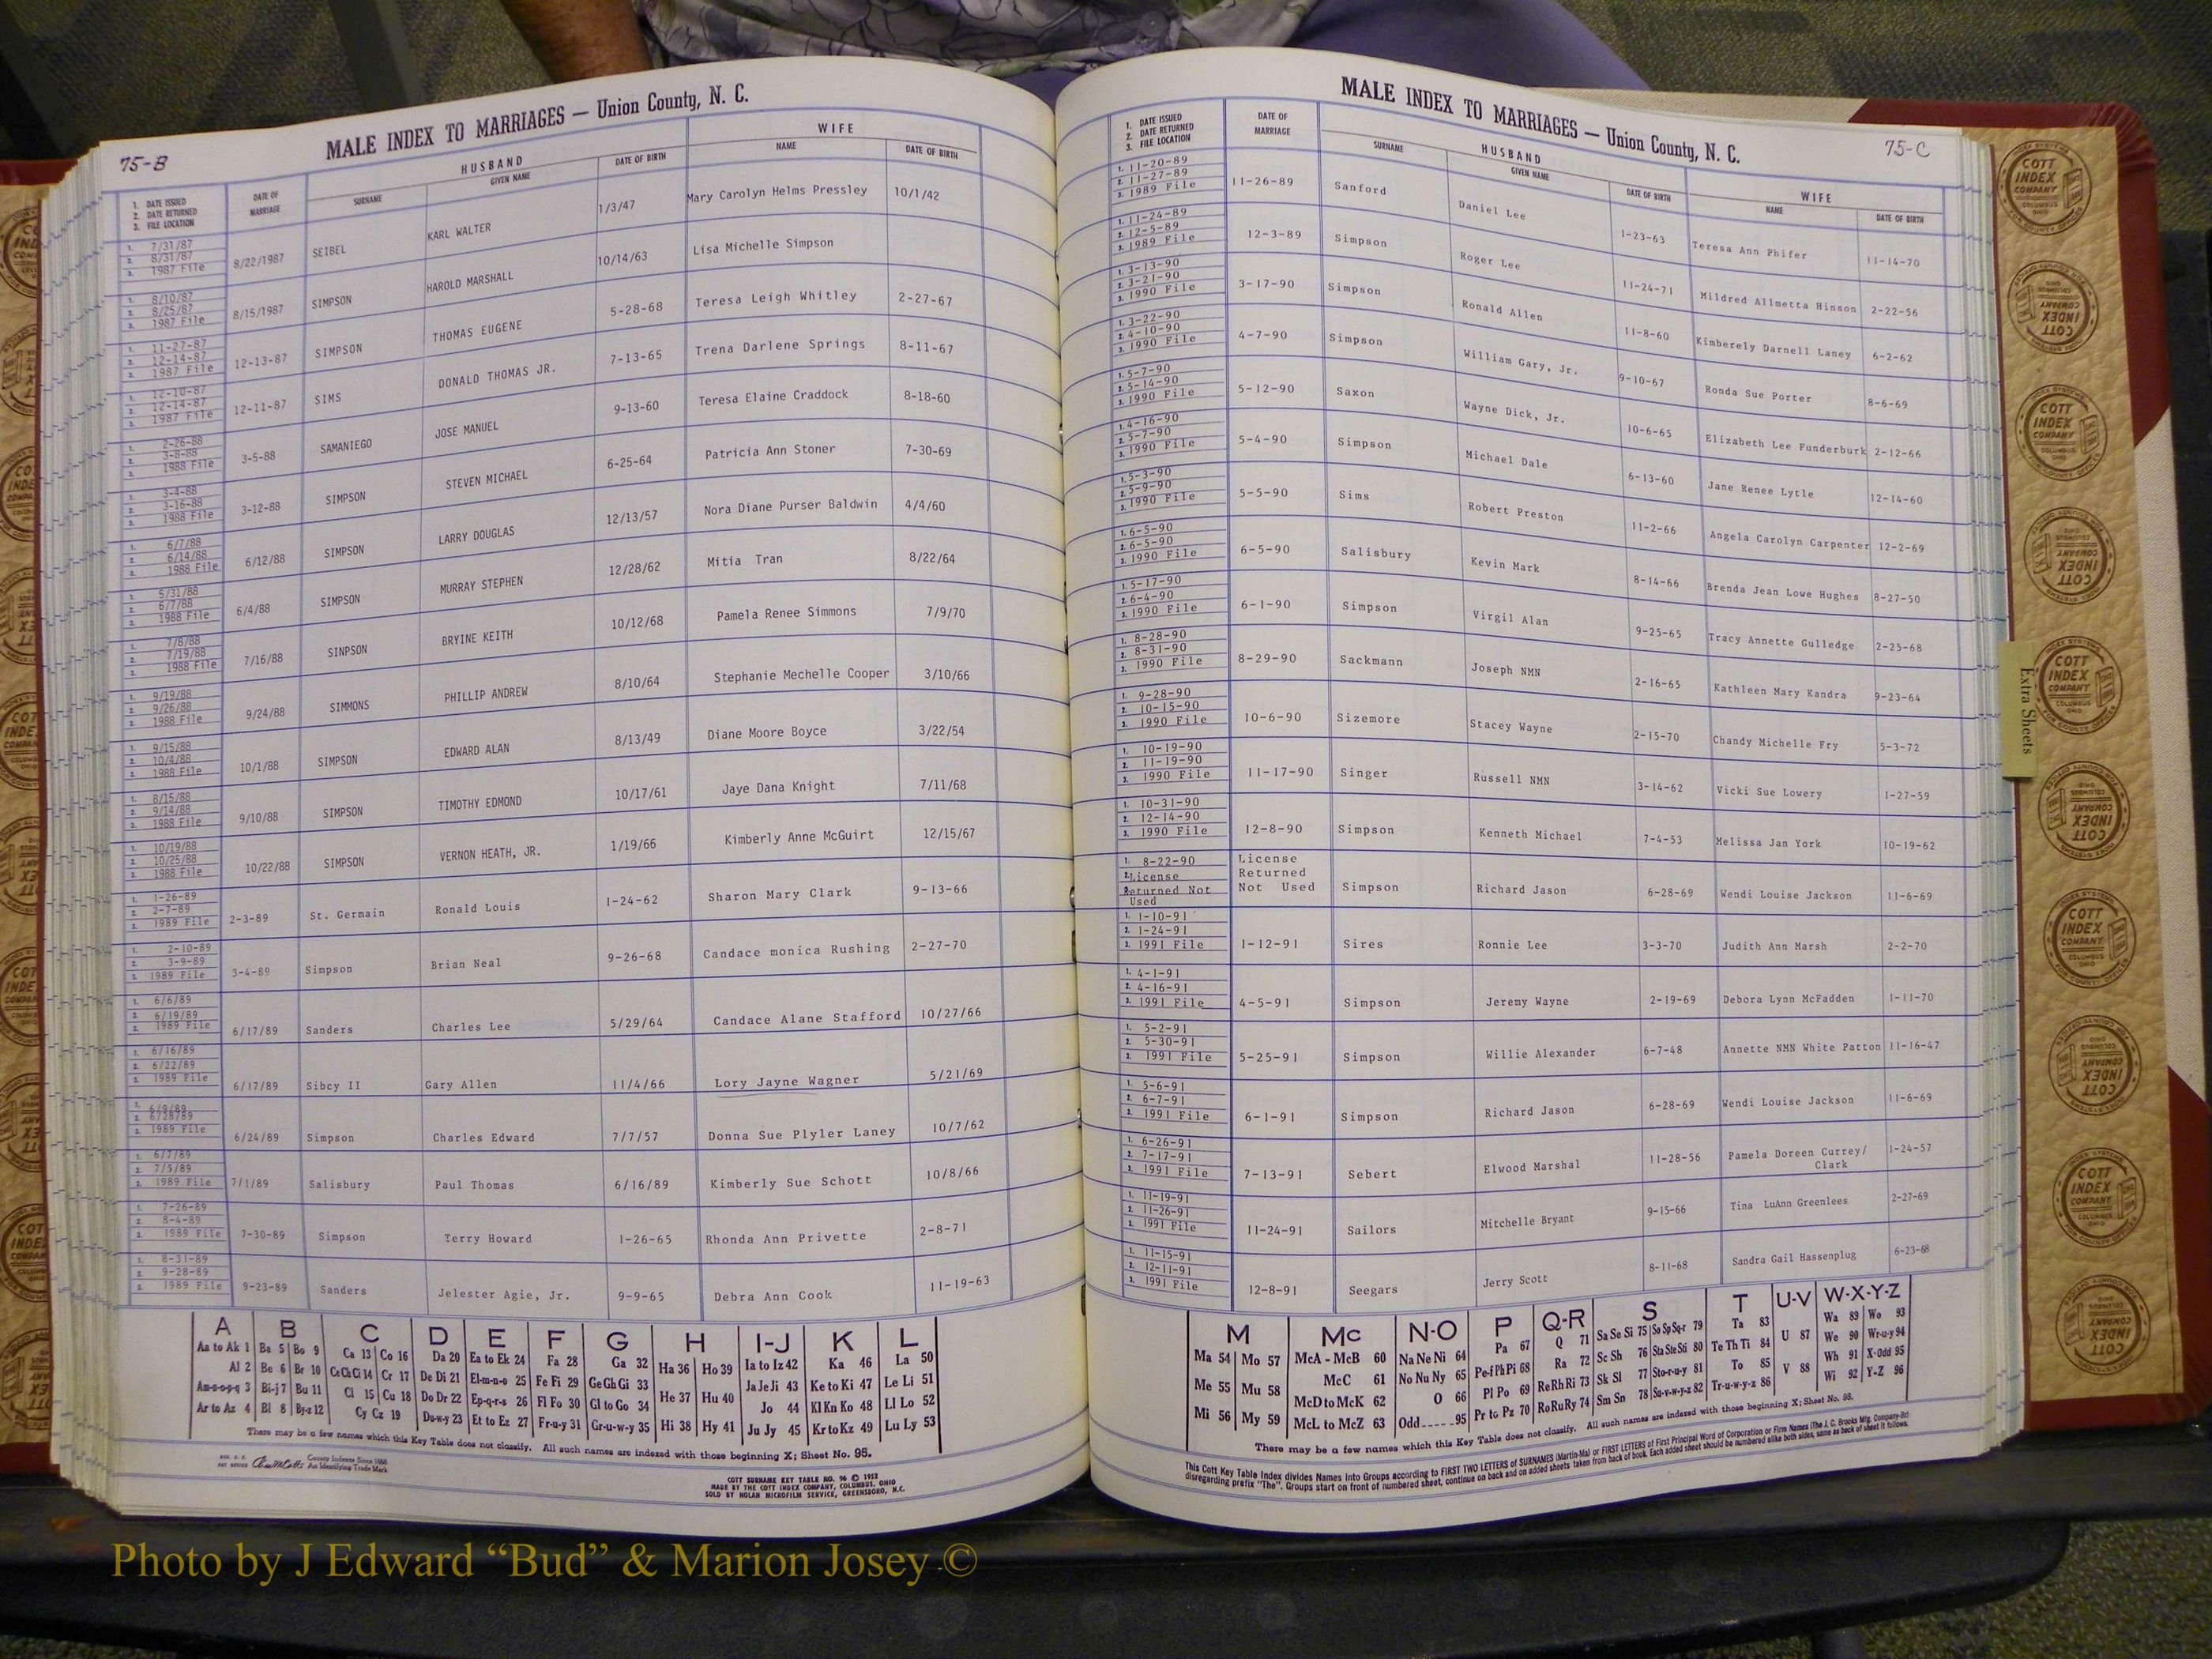 75-B
MALE INDEX TO MARRIAGES — Union County, N. C.
1. DATE ISSUED
2. DATE RETURNED
3. FILE LOCATION
DATE OF MARRIAGE
HUSBAND
SURNAME GIVEN NAME DATE OF BIRTH
WIFE
NAME DATE OF BIRTH
1. 7/31/87
2. 8/31/87
3. 1987 File
8/22/1987 SEIBEL KARL WALTER 1/3/47 Mary Carolyn Helms Pressley 10/1/42
1. 8/10/87
2. 8/25/87
3. 1987 File
8/15/1987 SIMPSON HAROLD MARSHALL 10/14/63 Lisa Michelle Simpson
1. 11-27-87
2. 12-14-87
3. 1987 File
12-13-87 SIMPSON THOMAS EUGENE 5-28-68 Teresa Leigh Whitley 2-27-67
1. 12-10-87
2. 12-14-87
3. 1987 File
12-11-87 SIMS DONALD THOMAS JR. 7-13-65 Trena Darlene Springs 8-11-67
1. 2-26-88
2. 3-8-88
3. 1988 File
3-5-88 SAMANIEGO JOSE MANUEL 9-13-60 Teresa Elaine Craddock 8-18-60
1. 3-4-88
2. 3-16-88
3. 1988 File
3-12-88 SIMPSON STEVEN MICHAEL 6-25-64 Patricia Ann Stoner 7-30-69
1. 6/7/88
2. 6/14/88
3. 1988 File
6/12/88 SIMPSON LARRY DOUGLAS 12/13/57 Nora Diane Purser Baldwin 4/4/60
1. 5/31/88
2. 6/7/88
3. 1988 File
6/4/88 SIMPSON MURRAY STEPHEN 12/28/62 Mitia Tran 8/22/64
1. 7/8/88
2. 7/19/88
3. 1988 File
7/16/88 SINPSON BRYINE KEITH 10/12/68 Pamela Renee Simmons 7/9/70
1. 9/19/88
2. 9/26/88
3. 1988 File
9/24/88 SIMMONS PHILLIP ANDREW 8/10/64 Stephanie Mechelle Cooper 3/10/66
1. 9/15/88
2. 10/4/88
3. 1988 File
10/1/88 SIMPSON EDWARD ALAN 8/13/49 Diane Moore Boyce 3/22/54
1. 8/15/88
2. 9/14/88
3. 1988 File
9/10/88 SIMPSON TIMOTHY EDMOND 10/17/61 Jaye Dana Knight 7/11/68
1. 10/19/88
2. 10/25/88
3. 1988 File
10/22/88 SIMPSON VERNON HEATH, JR. 1/19/66 Kimberly Anne McGuirt 12/15/67
1. 1-26-89
2. 2-7-89
3. 1989 File
2-3-89 St. Germain Ronald Louis 1-24-62 Sharon Mary Clark 9-13-66
1. 2-10-89
2. 3-9-89
3. 1989 File
3-4-89 Simpson Brian Neal 9-26-68 Candace monica Rushing 2-27-70
1. 6/6/89
2. 6/19/89
3. 1989 File
6/17/89 Sanders Charles Lee 5/29/64 Candace Alane Stafford 10/27/66
1. 6/16/89
2. 6/22/89
3. 1989 File
6/17/89 Sibcy II Gary Allen 11/4/66 Lory Jayne Wagner 5/21/69
1. 6/9/89
2. 6/28/89
3. 1989 File
6/24/89 Simpson Charles Edward 7/7/57 Donna Sue Plyler Laney 10/7/62
1. 6/7/89
2. 7/5/89
3. 1989 File
7/1/89 Salisbury Paul Thomas 6/16/89 Kimberly Sue Schott 10/8/66
1. 7-26-89
2. 8-4-89
3. 1989 File
7-30-89 Simpson Terry Howard 1-26-65 Rhonda Ann Privette 2-8-71
1. 8-31-89
2. 9-28-89
3. 1989 File
9-23-89 Sanders Jelester Agie, Jr. 9-9-65 Debra Ann Cook 11-19-63
A B C D E F G H I-J K L
Aa to Ak 1 Ba 5 Bo 9 Ca 13 Co 16 Da 20 Ea to Ek 24 Fa 28 Ga 32 Ha 36 Ho 39 Ia to Iz 42 Ka 46 La 50
Al 2 Be 6 Br 10 Ce Ch Ci 14 Cr 17 De Di 21 El-m-n-o 25 Fe Fi 29 Ge Gh Gi 33 He 37 Hu 40 Ja Je Ji 43 Ke to Ki 47 Le Li 51
Am-n-o-p-q 3 Bi-j 7 Bu 11 Cl 15 Cu 18 Do Dr 22 Ep-q-r-s 26 Fl Fo 30 Gl to Go 34 Hi 38 Hy 41 Jo 44 Kl Kn Ko 48 Ll Lo 52
Ar to Az 4 Bl 8 By-z 12 Cy Cz 19 Du-w-y 23 Et to Ez 27 Fr-u-y 31 Gr-u-w-y 35 Ju Jy 45 Kr to Kz 49 Lu Ly 53
There may be a few names which this Key Table does not classify. All such names are indexed with those beginning X; Sheet No. 95.
County Indexes Since 1888
An Identifying Trade Mark
COTT SURNAME KEY TABLE NO. 96 © 1952
MADE BY THE COTT INDEX COMPANY, COLUMBUS, OHIO
SOLD BY NOLAN MICROFILM SERVICE, GREENSBORO, N.C.
MALE INDEX TO MARRIAGES — Union County, N. C.
75-C
1. DATE ISSUED
2. DATE RETURNED
3. FILE LOCATION
DATE OF MARRIAGE
HUSBAND
SURNAME GIVEN NAME DATE OF BIRTH
WIFE
NAME DATE OF BIRTH
1. 11-20-89
2. 11-27-89
3. 1989 File
11-26-89 Sanford Daniel Lee 1-23-63 Teresa Ann Phifer 11-14-70
1. 11-24-89
2. 12-5-89
3. 1989 File
12-3-89 Simpson Roger Lee 11-24-71 Mildred Allmetta Hinson 2-22-56
1. 3-13-90
2. 3-21-90
3. 1990 File
3-17-90 Simpson Ronald Allen 11-8-60 Kimberely Darnell Laney 6-2-62
1. 3-22-90
2. 4-10-90
3. 1990 File
4-7-90 Simpson William Gary, Jr. 9-10-67 Ronda Sue Porter 8-6-69
1. 5-7-90
2. 5-14-90
3. 1990 File
5-12-90 Saxon Wayne Dick, Jr. 10-6-65 Elizabeth Lee Funderburk 2-12-66
1. 4-16-90
2. 5-7-90
3. 1990 File
5-4-90 Simpson Michael Dale 6-13-60 Jane Renee Lytle 12-14-60
1. 5-3-90
2. 5-9-90
3. 1990 File
5-5-90 Sims Robert Preston 11-2-66 Angela Carolyn Carpenter 12-2-69
1. 6-5-90
2. 6-5-90
3. 1990 File
6-5-90 Salisbury Kevin Mark 8-14-66 Brenda Jean Lowe Hughes 8-27-50
1. 5-17-90
2. 6-4-90
3. 1990 File
6-1-90 Simpson Virgil Alan 9-25-65 Tracy Annette Gulledge 2-25-68
1. 8-28-90
2. 8-31-90
3. 1990 File
8-29-90 Sackmann Joseph NMN 2-16-65 Kathleen Mary Kandra 9-23-64
1. 9-28-90
2. 10-15-90
3. 1990 File
10-6-90 Sizemore Stacey Wayne 2-15-70 Chandy Michelle Fry 5-3-72
1. 10-19-90
2. 11-19-90
3. 1990 File
11-17-90 Singer Russell NMN 3-14-62 Vicki Sue Lowery 1-27-59
1. 10-31-90
2. 12-14-90
3. 1990 File
12-8-90 Simpson Kenneth Michael 7-4-53 Melissa Jan York 10-19-62
1. 8-22-90
2. License
Returned Not
Used
License
Returned
Not Used
Simpson Richard Jason 6-28-69 Wendi Louise Jackson 11-6-69
1. 1-10-91
2. 1-24-91
3. 1991 File
1-12-91 Sires Ronnie Lee 3-3-70 Judith Ann Marsh 2-2-70
1. 4-1-91
2. 4-16-91
3. 1991 File
4-5-91 Simpson Jeremy Wayne 2-19-69 Debora Lynn McFadden 1-11-70
1. 5-2-91
2. 5-30-91
3. 1991 File
5-25-91 Simpson Willie Alexander 6-7-48 Annette NMN White Patton 11-16-47
1. 5-6-91
2. 6-7-91
3. 1991 File
6-1-91 Simpson Richard Jason 6-28-69 Wendi Louise Jackson 11-6-69
1. 6-26-91
2. 7-17-91
3. 1991 File
7-13-91 Sebert Elwood Marshal 11-28-56 Pamela Doreen Currey/ 1-24-57
Clark
1. 11-19-91
2. 11-26-91
3. 1991 File
11-24-91 Sailors Mitchelle Bryant 9-15-66 Tina LuAnn Greenlees 2-27-69
1. 11-15-91
2. 12-11-91
3. 1991 File
12-8-91 Seegars Jerry Scott 8-11-68 Sandra Gail Hassenplug 6-23-68
M Mc N-O P Q-R S T U-V W-X-Y-Z
Ma 54 Mo 57 McA - McB 60 Na Ne Ni 64 Pa 67 Q 71 Sa Se Si 75 So Sp Sq-r 79 Ta 83 U 87 Wa 89 Wo 93
Me 55 Mu 58 McC 61 No Nu Ny 65 Pe-f Ph Pi 68 Ra 72 Sc Sh 76 Sta Ste Sti 80 Te Th Ti 84 V 88 We 90 Wr-u-y 94
Mi 56 My 59 McD to McK 62 O 66 Pl Po 69 Re Rh Ri 73 Sk Sl 77 Sto-r-u-y 81 To 85 Wh 91 X-Odd 95
McL to McZ 63 Odd 95 Pr to Pz 70 Ro Ru Ry 74 Sm Sn 78 Su-v-w-y-z 82 Tr-u-w-y-z 86 Wi 92 Y-Z 96
There may be a few names which this Key Table does not classify. All such names are indexed with those beginning X; Sheet No. 95.
This Cott Key Table Index divides Names into Groups according to FIRST TWO LETTERS of SURNAMES (Martin-Ma) or FIRST LETTERS of First Principal Word of Corporation or Firm Names (The J. C. Brooks Mfg. Company-Br)
disregarding prefix "The". Groups start on front of numbered sheet, continue on back and on added sheets taken from back of book. Each added sheet should be numbered alike both sides, same as back of sheet it follows.
Extra Sheets
COTT
INDEX
COMPANY
COLUMBUS
OHIO
Photo by J Edward “Bud” & Marion Josey ©